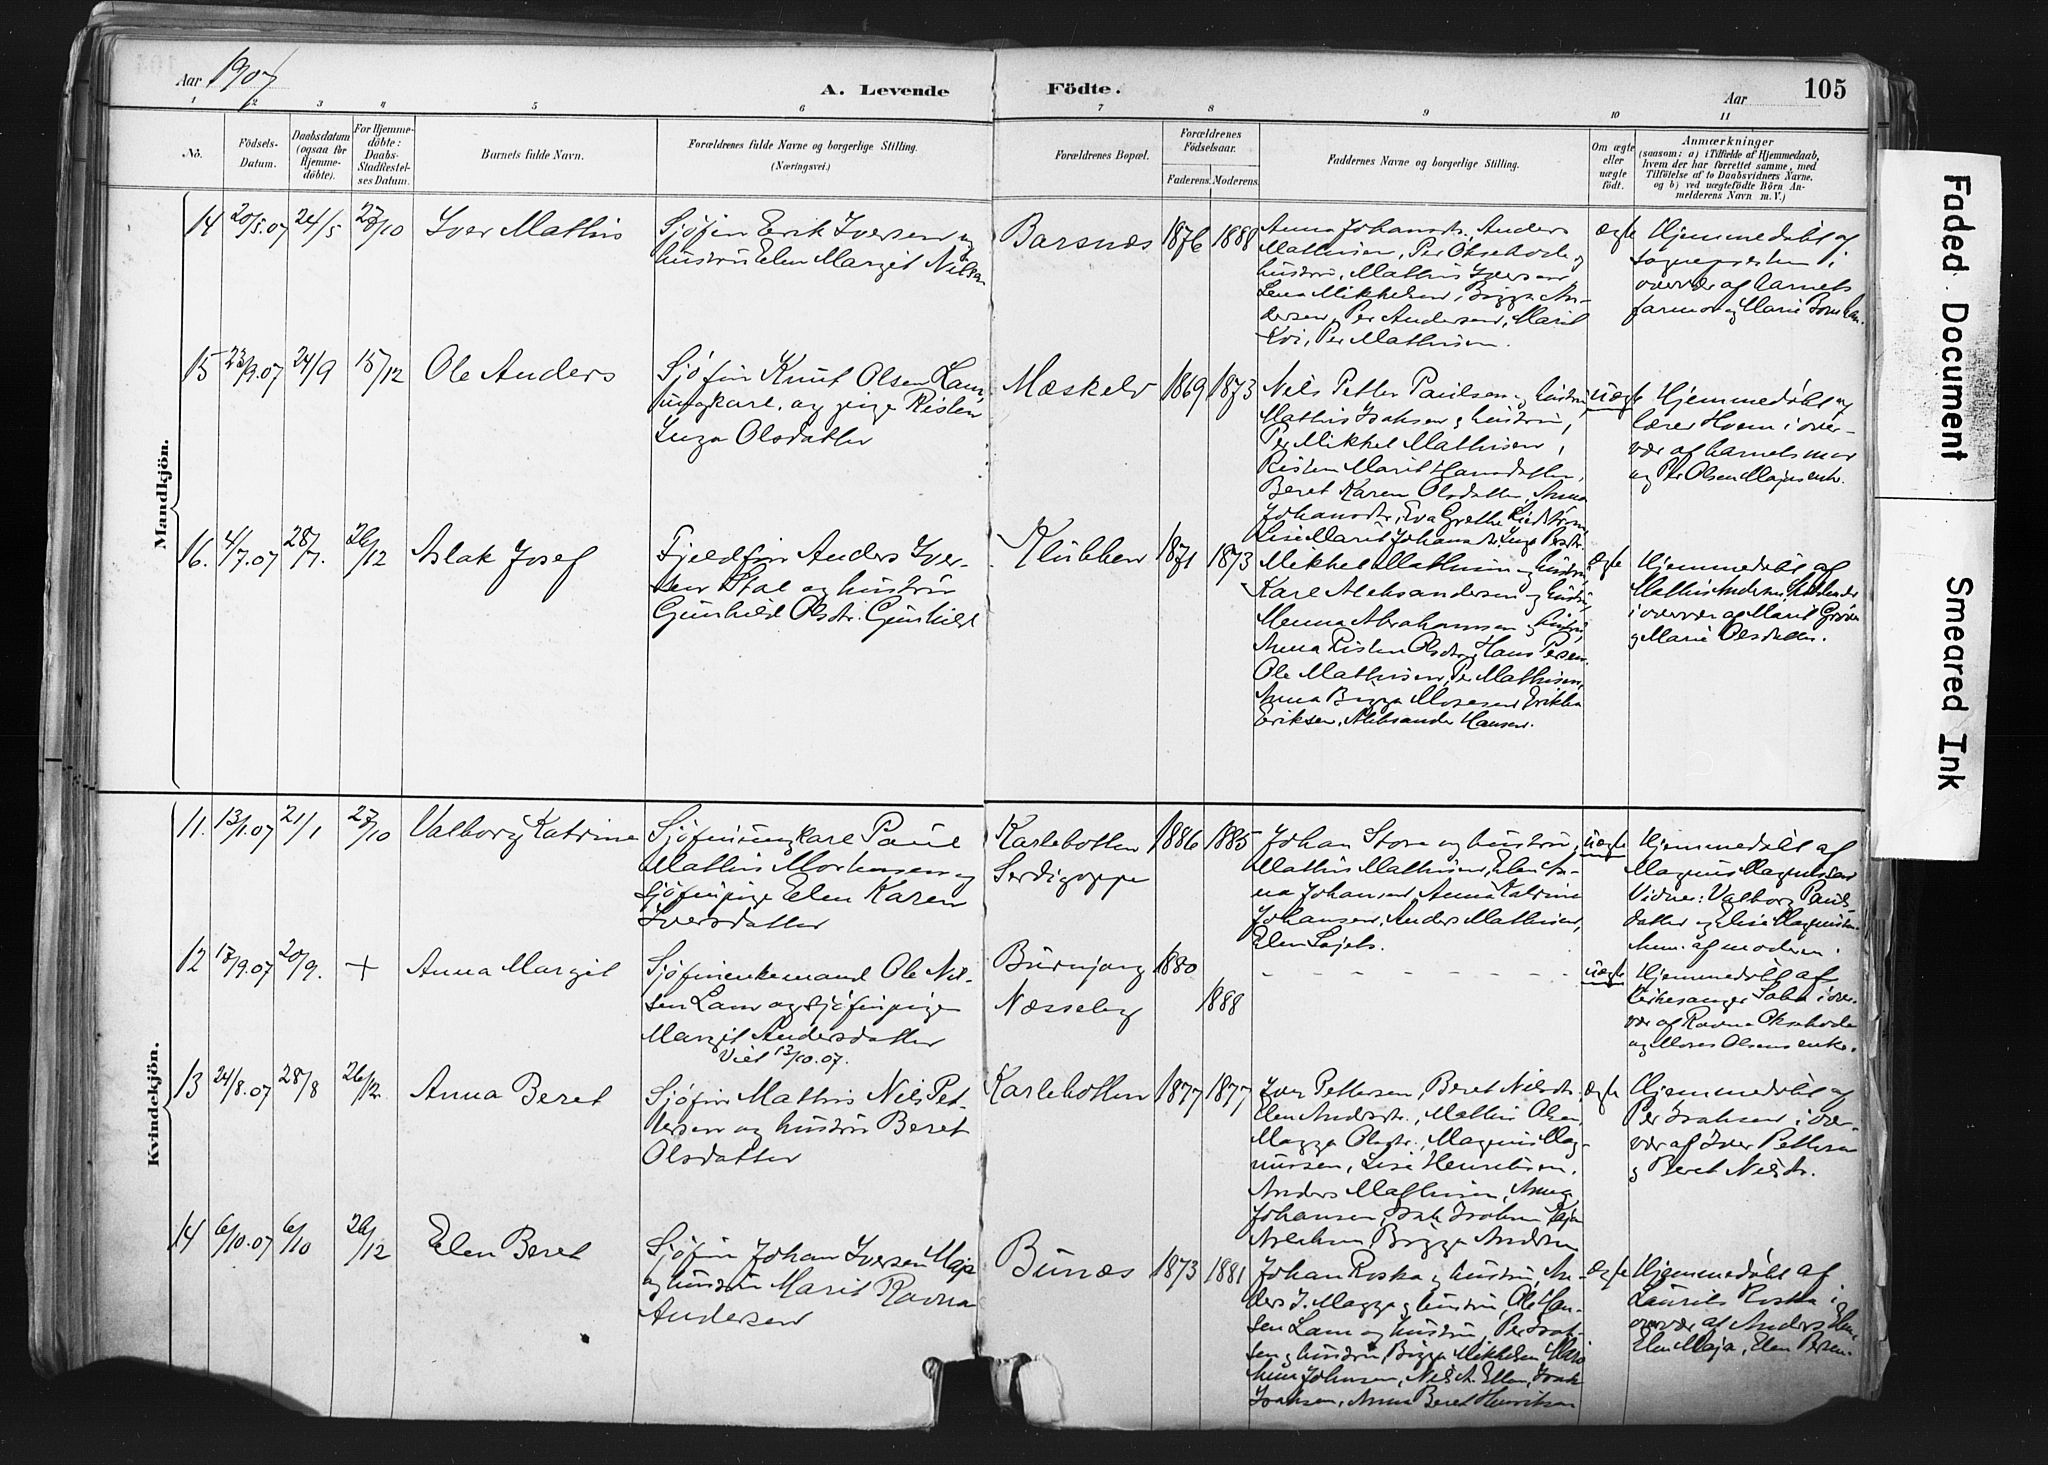 Aar 1907
A. Levende Födte.
Aar
105
1 2 3 4 5 6 7 8 9 10 11
No.
Födsels-
Datum.
Daabsdatum
(ogsaa for
Hjemme-
döbte).
For Hjemme-
döbte:
Daabs-
Stadfæstel-
ses Datum.
Barnets fulde Navn.
Forældrenes fulde Navne og borgerlige Stilling.
(Næringsvei.)
Forældrenes Bopæl.
Forældrenes
Födselsaar.
Faderens. Moderens.
Faddernes Navne og borgerlige Stilling.
Om ægte
eller
uægte
födt.
Anmærkninger
(saasom: a) i Tilfælde af Hjemmedaab,
hvem der har forrettet samme, med
Tilföielse af to Daabsvidners Navne,
og b) ved uægtefödte Börn An-
melderens Navn m. V.)
Mandkjön.
14 20/5.07 24/5 27/10 Iver Mathis
Sjöfin Erik Iversen og
hustru Elen Margit Nilsen
Barsnæs 1876 1888
Anna Johansdtr, Anders
Mathisen, Per Oksehode og
hustru, Mathis Iversen
Lena Mikkelsen, Bigga An-
dersen, Per Andersen, Marit
Per Mathisen.
ægte
Hjemmedöbt af
sognepresten i
overvær af barnets
farmor og Marie
15 23/9.07 24/9 15/12 Ole Anders
Sjöfin Knut Olsen Lam
ungkarl, og pige Risten
Inga Olsdatter
Mæskelv 1869 1873
Nils Petter Paulsen og hustru
Mathis Isaksen og hustru,
Per Mikkel Mathisen,
Risten Marit Hansdatter,
Beret Karen Olsdatter, Anna
Johansdtr, Eva Grethe
Lise Marit Johansdtr, Inga Persdtr.
uægte
Hjemmedöbt af
lærer Hvem i over-
vær af barnets mor
og Per Olsen Majas enke.
16. 4/7.07 28/7. 26/12 Aslak Josef
Fjeldfin Anders Iver-
sen Stal og hustru
Gunhild Olsdtr. Gunhild
Klubben 1871 1873
Mikkel Mathisen og hustru,
Karl Aleksandersen og hustru,
Menna Abrahamsen og hustru,
Anna Risten Olsdtr, Hans Persen
Ole Mathisen, Per Mathisen,
Anna Bigga Mosesen, Erikka
Eriksen, Aleksander Hansen.
ægte
Hjemmedöbt af
Mathis Andersen
i overvær af Marit
og Marie Olsdatter.
Kvindekjön.
11. 13/1.07 21/1 27/10 Valborg Katrine
Sjöfinungkarl Paul
Mathis Mortensen og
Sjöfinpige Elen Karen
Iversdatter
Karlebotten
Serdigoppe
1886 1885
Johan Store og hustru,
Mathis Mathisen, Elen An-
na Johansen, Anna Katrine
Johansen, Anders Mathisen,
Elen Sajets.
uægte
Hjemmedöbt af
Magnus Magnussen
Vidner: Valborg Pauls-
datter og Elise Magnussen
Anm. af moderen.
12 17/9.07 20/9. + Anna Margit
Sjöfinenkemand Ole Nil-
sen Lam og sjöfinpige
Margit Andersdatter
Viet 13/10.07.
Burnjarg 1880
Næsseby 1888
- - - - - - - -
uægte
Hjemmedöbt af
Kirkesanger Saba i over-
vær af Ravna Oksehode
og Moses Olsens enke.
13 24/8.07 28/8 26/12. Anna Beret
Sjöfin Mathis Nils Pet-
tersen og hustru Beret
Olsdatter
Karlebotten 1877 1877
Iver Pettersen, Beret Nilsdtr.
Elen Andersdtr., Mathis Olsen,
Magga Olsdtr., Magnus Mag-
nussen, Lise Henriksen,
Anders Mathisen, Anna
Johansen, Isak Isaksen, Kaja
Bigga Andersen
ægte
Hjemmedöbt af
Per Isaksen i over-
vær af Iver Pettersen
og Beret Nilsdtr.
14 6/10.07 6/10 26/12 Elen Beret
Sjöfin Johan Iversen Maja
og hustru Marit Ravna
Andersen
Bunæs 1873 1881
Johan Roska og hustru, An-
ders J. Magga og hustru, Ole Han-
sen Lam og hustru, Per Isak-
sen og hustru, Bigga Mikkelsen,
Johnsen, Nils A. Ellen, Isak
Isaksen, Anna Beret Henriksen
Ægte
Hjemmedöbt af
Laurits Roska i
overvær af Anders
Elen Maja, Elen Persen.
Faded Document
Smeared Ink